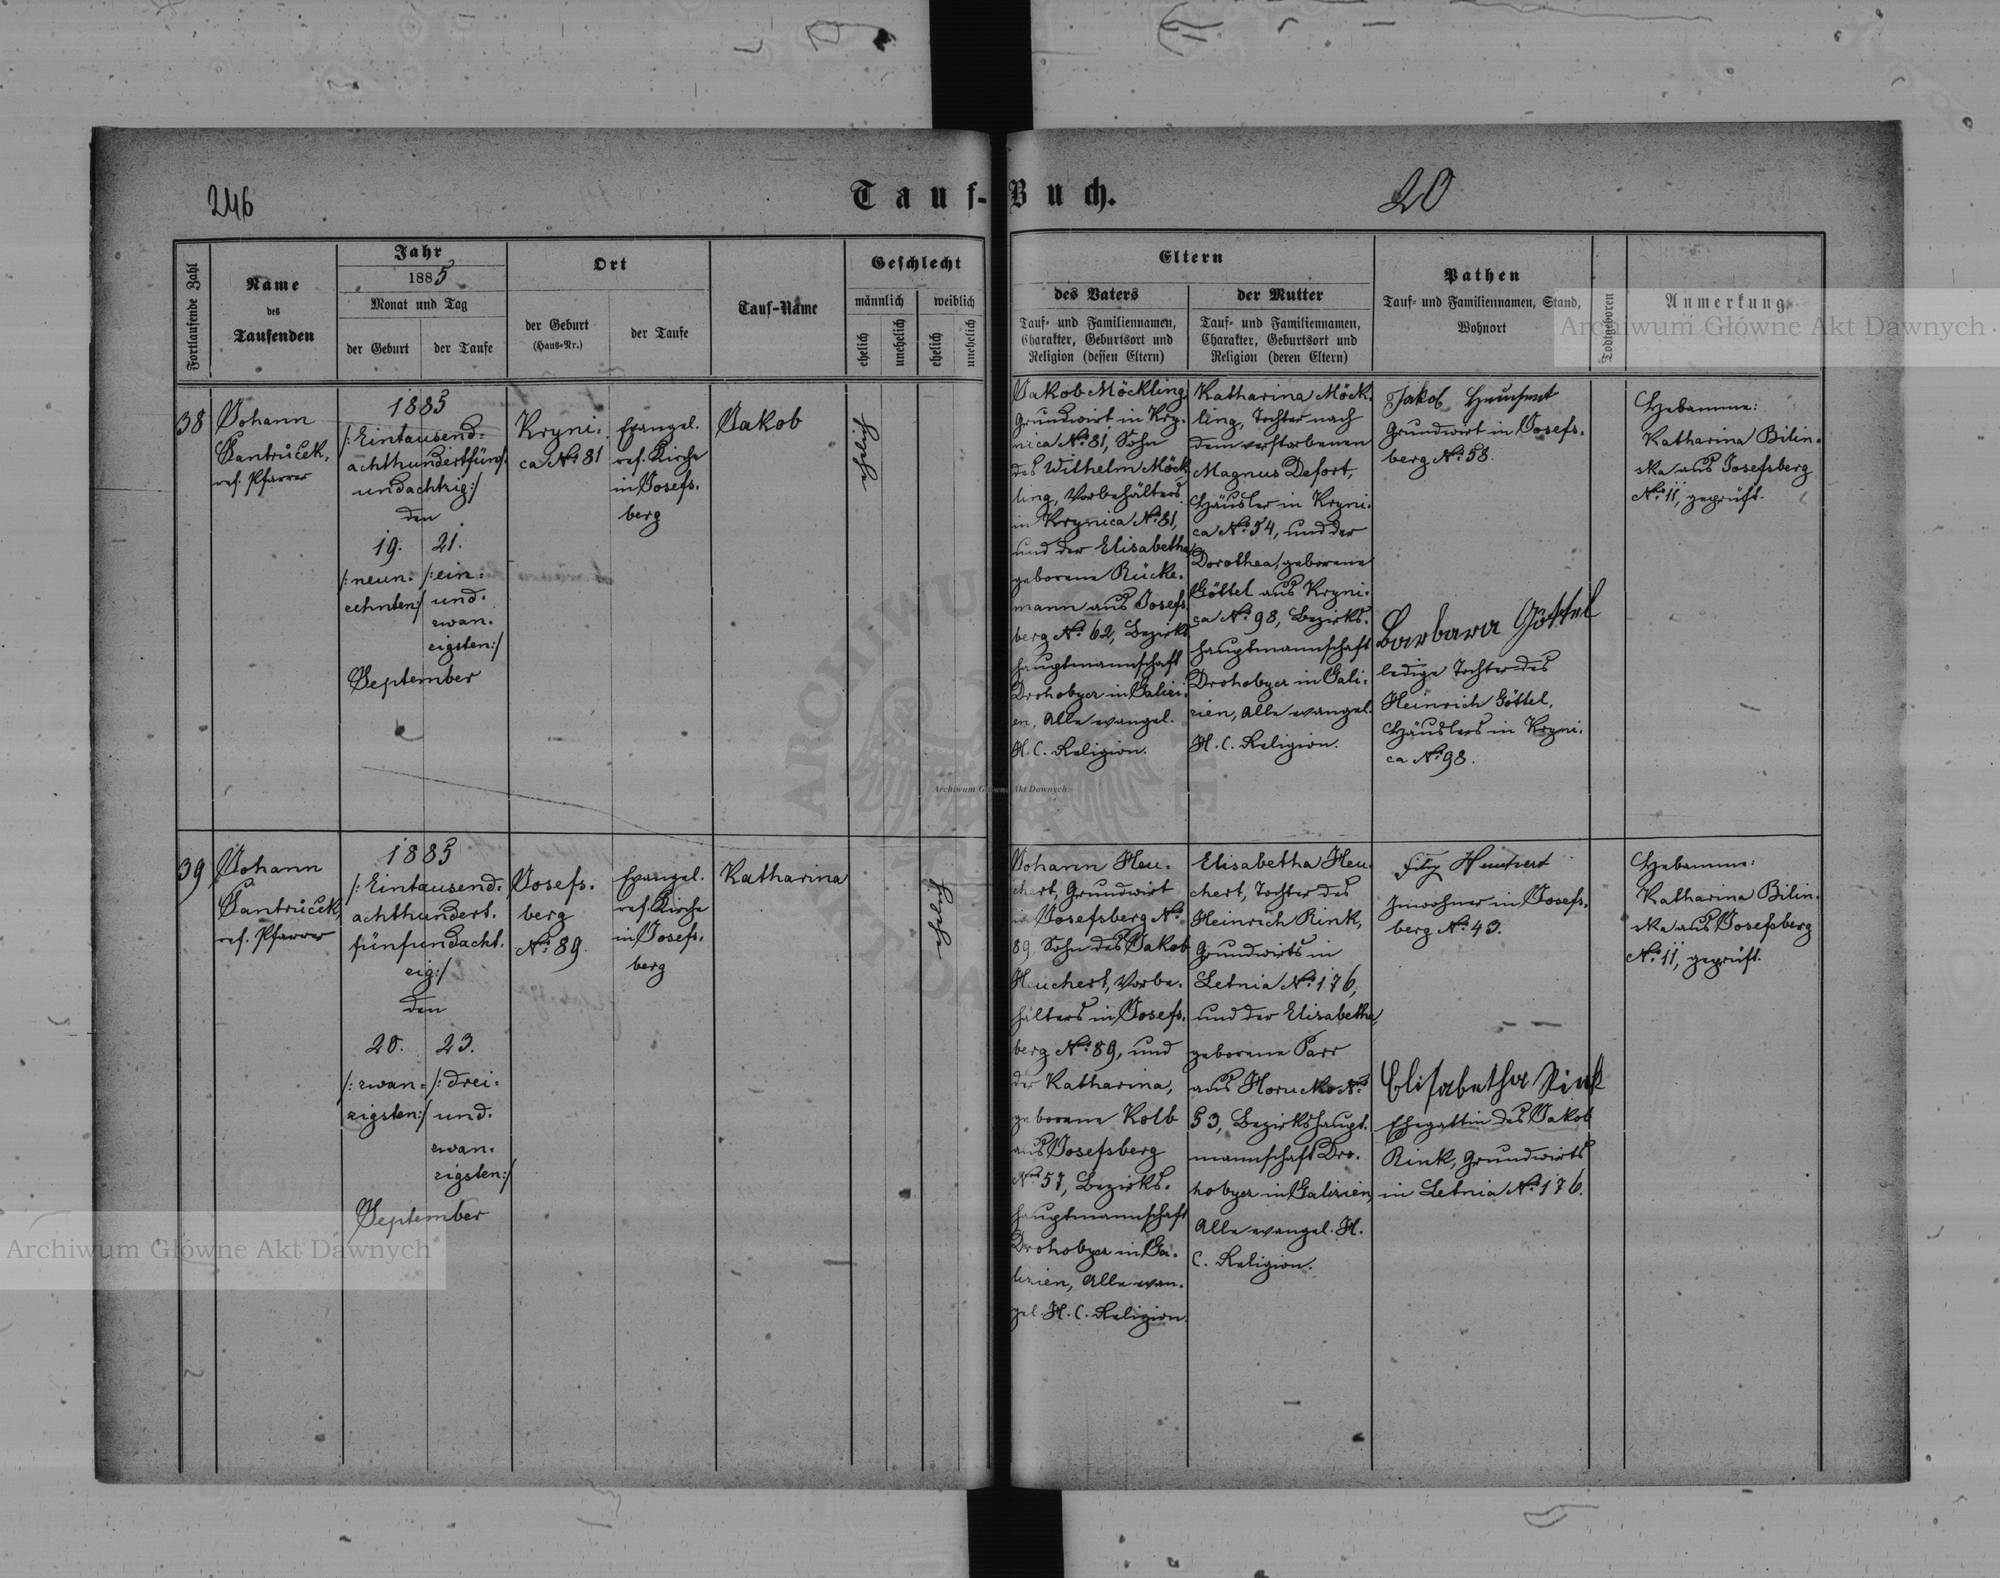 246
Tauf-Buch.
20
Fortlaufende Zahl
Name
des
Taufenden
Jahr
1885
Monat und Tag
der Geburt
der Taufe
Ort
der Geburt
(Haus-Nr.)
der Taufe
Tauf-Name
Geschlecht
männlich
weiblich
ehelich
unehelich
ehelich
unehelich
Eltern
des Vaters
Tauf- und Familiennamen,
Charakter, Geburtsort und
Religion (dessen Eltern)
der Mutter
Tauf- und Familiennamen,
Charakter, Geburtsort und
Religion (deren Eltern)
Pathen
Tauf- und Familiennamen, Stand,
Wohnort
Todtgeboren
Anmerkung
38
Johann
Santrůček,
ref. Pfarrer
1885
/:Eintausend-
achthundertfünf-
undachtzig:/
den
19.
/:neun-
zehnten:/
21.
/:ein-
und-
zwan-
zigsten:/
September
Kryni-
ca No 81
Evangel.
ref. Kirche
in Josefs-
berg
Jakob
ehelich
Jakob Möckling,
Grundwirt in Kry-
nica No 81, Sohn
des Wilhelm Möck-
ling, Vorbehälters
in Krynica No 81,
und der Elisabetha
geborene Rücke-
mann aus Josefs-
berg No 62, Bezirks-
hauptmannschaft
Drohobycz in Galizi-
en, Alle evangel.
H. C. Religion.
Katharina Möck-
ling, Tochter nach
dem verstorbenen
Magnus Defort,
Häusler in Kryni-
ca No 54, und der
Dorothea, geborene
Göttel aus Kryni-
ca No 98, Bezirks-
hauptmannschaft
Drohobycz in Gali-
zien, Alle evangel.
H. C. Religion.
Jakob
Grundwirt in Josefs-
berg No 58.
Barbara Göttel
ledige Tochter des
Heinrich Göttel,
Häuslers in Kryni-
ca No 98.
Hebamme:
Katharina Bilin-
ska aus Josefsberg
No 11, geprüft.
39
Johann
Santrůček,
ref. Pfarrer
1885
/:Eintausend-
achthundert-
fünfundacht-
zig:/
den
20.
/:zwan-
zigsten:/
23.
/:drei-
und-
zwan-
zigsten:/
September
Josefs-
berg
No 89.
Evangel.
ref. Kirche
in Josefs-
berg
Katharina
ehelich
Johann Heu-
chert, Grundwirt
in Josefsberg No
89, Sohn des Jakob
Heuchert, Vorbe-
hälters in Josefs-
berg No 89, und
der Katharina,
geborene Kolb
aus Josefsberg
No 57, Bezirks-
hauptmannschaft
Drohobycz in Ga-
lizien, Alle evan-
gel. H. C. Religion.
Elisabetha Heu-
chert, Tochter des
Heinrich Rink,
Grundwirts in
Letnia No 176,
und der Elisabetha,
geborene Parr
aus Horucko No
53, Bezirkshaupt-
mannschaft Dro-
hobycz in Galizien,
Alle evangel. H.
C. Religion.
Heuchert
Inwohner in Josefs-
berg No 43.
Elisabetha Rink
Ehegattin des Jakob
Rink, Grundwirts
in Letnia No 176.
Hebamme:
Katharina Bilin-
ska aus Josefsberg
No 11, geprüft.
Archiwum Główne Akt Dawnych
Archiwum Główne Akt Dawnych
Archiwum Główne Akt Dawnych